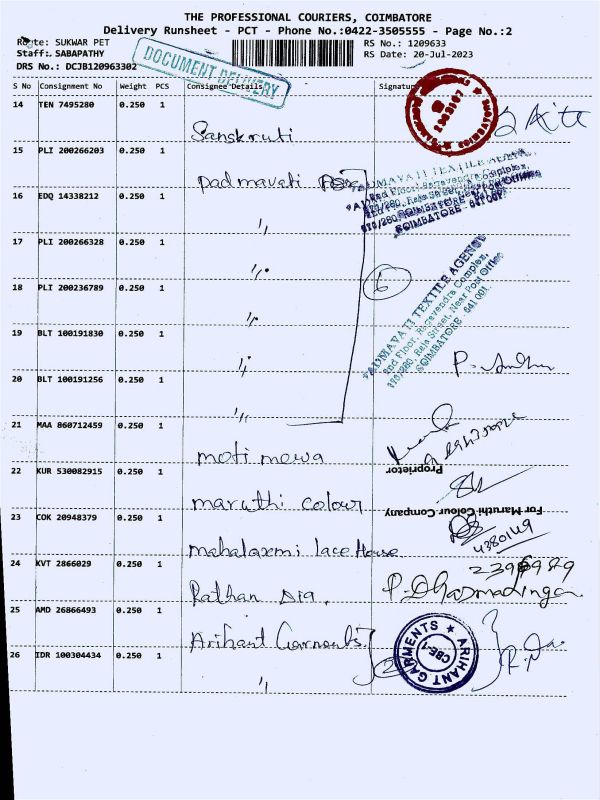 THE PROFESSIONAL COURIERS, COIMBATORE
Delivery Runsheet - PCT - Phone No.:0422-3505555 - Page No.:2
Route: SUKWAR PET
RS No.: 1209633
Staff: SABAPATHY
RS Date: 20-Jul-2023
DRS No.: DCJB120963302
DOCUMENT DELIVERY
S No Consignment No Weight PCS Consignee Details Signature
14 TEN 7495280 0.250 1
Sanskruti
15 PLI 200266203 0.250 1
Padmavati
16 EDQ 14338212 0.250 1
"
17 PLI 200266328 0.250 1
"
18 PLI 200236789 0.250 1
"
6
19 BLT 100191830 0.250 1
"
20 BLT 100191256 0.250 1
"
PADMAVATI TEXTILE AGENCY
2nd Floor, Ragavendra Complex,
Raja Street, Near Post Office
COIMBATORE - 641 001.
21 MAA 860712459 0.250 1
moti mewa
Proprietor
22 KUR 530082915 0.250 1
maruthi colour
For Maruthi Colour Company
23 COK 20948379 0.250 1
mahalaxmi lace House
24 KVT 2866029 0.250 1
Rathan Dig.
25 AMD 26866493 0.250 1
Arihant Garments
26 IDR 100304434 0.250 1
"
2
ARIHANT GARMENTS
CBE-1